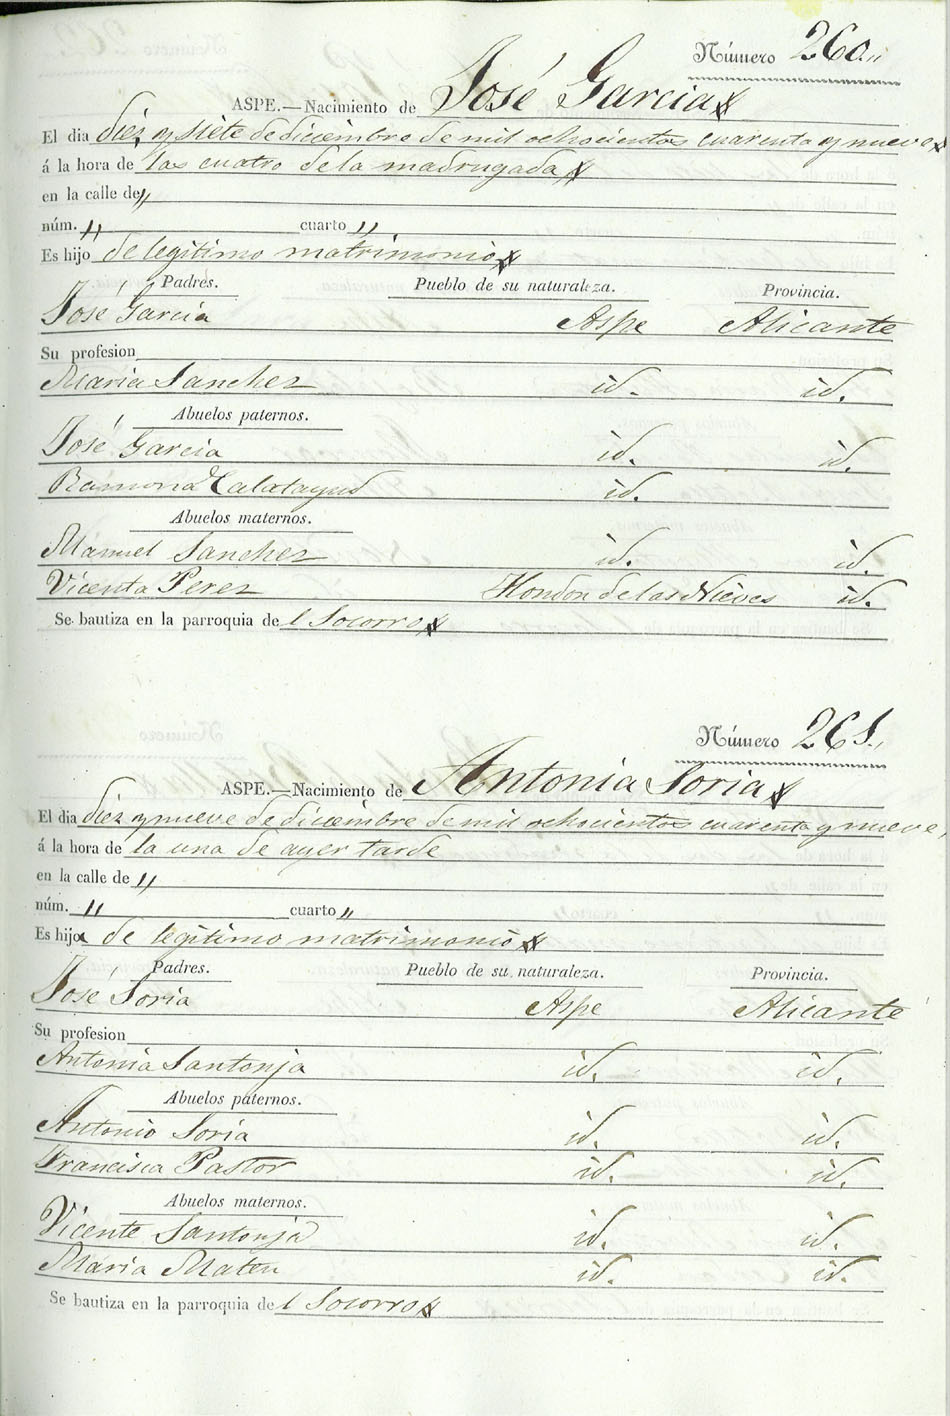 Número 260.„
ASPE.—Nacimiento de José Garcia
El dia diez y siete de diciembre de mil ochocientos cuarenta y nueve
á la hora de las cuatro de la madrugada
en la calle de „
núm. „ cuarto „
Es hijo de legitimo matrimonio
Padres. Pueblo de su naturaleza. Provincia.
José Garcia Aspe Alicante
Su profesion
Maria Sanchez id. id.
Abuelos paternos.
José Garcia id. id.
Ramona Calatayud id.
Abuelos maternos.
Manuel Sanchez id. id.
Vicenta Perez Hondon de las Nieves id.
Se bautiza en la parroquia del Socorro
Número 261.
ASPE.—Nacimiento de Antonia Soria
El dia diez y nueve de diciembre de mil ochocientos cuarenta y nueve,
á la hora de la una de ayer tarde
en la calle de „
núm. „ cuarto „
Es hija de legitimo matrimonio
Padres. Pueblo de su naturaleza. Provincia.
José Soria Aspe Alicante
Su profesion
Antonia Santonja id. id.
Abuelos paternos.
Antonio Soria id. id.
Francisca Pastor id. id.
Abuelos maternos.
Vicente Santonja id. id.
Maria Mateu id. id.
Se bautiza en la parroquia del Socorro